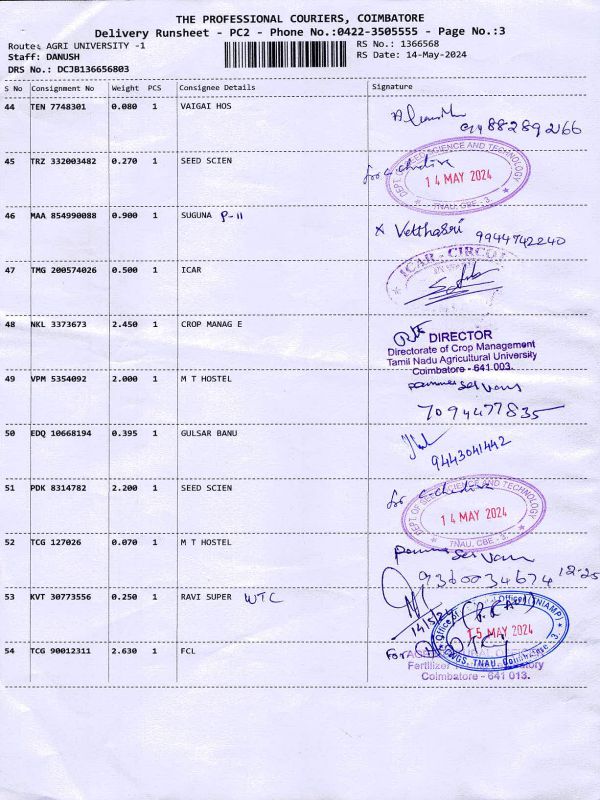 THE PROFESSIONAL COURIERS, COIMBATORE
Delivery Runsheet - PC2 - Phone No.:0422-3505555 - Page No.:3
Route: AGRI UNIVERSITY -1
RS No.: 1366568
Staff: DANUSH
RS Date: 14-May-2024
DRS No.: DCJB136656803
S No Consignment No Weight PCS Consignee Details Signature
44 TEN 7748301 0.080 1 VAIGAI HOS
45 TRZ 332003482 0.270 1 SEED SCIEN
DEPT. OF SEED SCIENCE AND TECHNOLOGY
14 MAY 2024
TNAU, CBE - 3.
46 MAA 854990088 0.900 1 SUGUNA P-11
x Vetthasri 9944742240
47 TMG 200574026 0.500 1 ICAR
ICAR - CIRCOT
48 NKL 3373673 2.450 1 CROP MANAG E
DIRECTOR
Directorate of Crop Management
Tamil Nadu Agricultural University
Coimbatore - 641 003.
49 VPM 5354092 2.000 1 M T HOSTEL
7094477835
50 EDQ 10668194 0.395 1 GULSAR BANU
9443041442
51 PDK 8314782 2.200 1 SEED SCIEN
for
DEPT. OF SEED SCIENCE AND TECHNOLOGY
14 MAY 2024
TNAU, CBE - 3.
52 TCG 127026 0.070 1 M T HOSTEL
9360034674 12-25
53 KVT 30773556 0.250 1 RAVI SUPER WTC
14/5/24
15 MAY 2024
CWGS, TNAU, Coimbatore - 3.
54 TCG 90012311 2.630 1 FCL
For
Fertilizer
Coimbatore - 641 013.